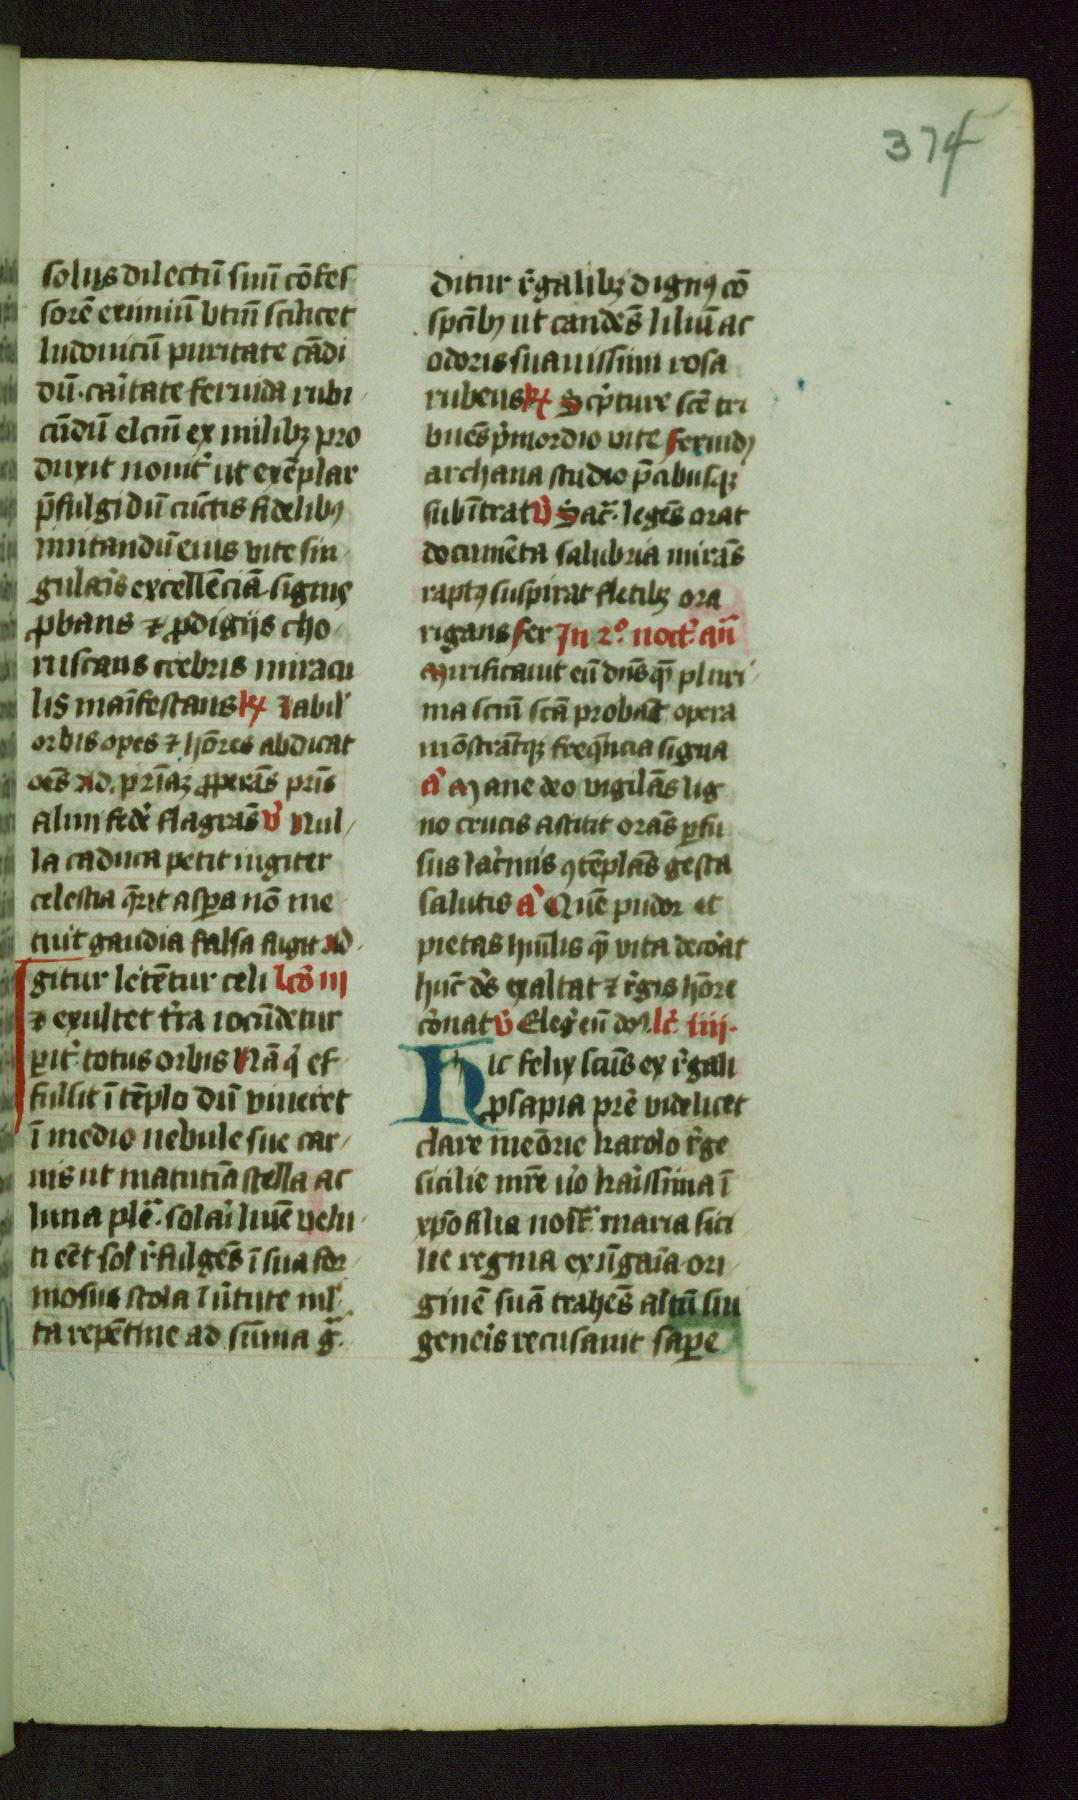 374
solijs dilectū suū cōfes
sorē eximiū btm̄ scilicet
ludouicū puritate cādi
dū. caritate feruida rubi
cūdū elcm̄ ex milibꝫ pro
duxit nouit᷑ ut exēplar
p̄fulgidū cūctis fidelibꝰ
imitandū eius vite sin
gularis excellēciā signis
ꝓbans ⁊ ꝓdigijs cho
ruscans crebris miracu
lis maīfestans R Labil᷑
orbis opes ⁊ hōres abdicat
oēs Ad p̄riaꝫ ꝓperās pr̄is
alim fede᷑ flagrās v̓ Nul
la caduca petit iugiter
celestia q̄rit aspera nō me
tuit gaudia falsa fugit Ad
Igitur letētur celi lcō̓ iii
⁊ exultet t̓ra iocūdetur
ꝑit᷑ totus orbis Nā q̓ ef
fulsit ī tēplo dū viueret
ī medio nebule sue car
nis ut matutīa stella ac
luna plē. solari lumīe velu
ti eēt sol r̓fulgēs ī sua for
mosus stola ī v̓tute ml᷑
ta repētine ad sūma g̓.
ditur r̓galibꝫ dignꝰ cō
spc̄ibꝰ ut candēs liliū ac
odoris suauissimi rosa
rubens R Sc̓pture sc̄e tri
buēs p̓mordio vite feruidꝰ
archana studio p̄cibusqꝫ
subītrat v̓ Sac᷑. legēs orat
documēta salubria mirās
raptꝰ suspirat fletibꝫ ora
rigans fer In 2º noct᷑. an̄
Mirificauit eū dn̄s q̄ pluri
ma scm̄ sc̄a probāt opera
mōstrātqꝫ freq̄ncia signa
a᷑ Mane deo vigilās lig
no crucis astitit orās ꝑfu
sus lac̓mis ꝯtēplās gesta
salutis a᷑ Quē pudor et
pietas hūilis q̄ vita decōat
huc̄ ds̄ exaltat ⁊ r̓gis hōre
cōnat v̓ Eleg᷑ eū dō. lc̄. iiii.
Hic felix sciūs ex r̓gali
ꝓsapia prē videlicet
clare meōrie karolo r̓ge
sicilie mr̄e v̓o kar̓issima ī
xp̄o filia nost᷑ maria sici
lie regina ex ūgaīa ori
ginē suā trahēs altū siu
geneis recusauit sapere